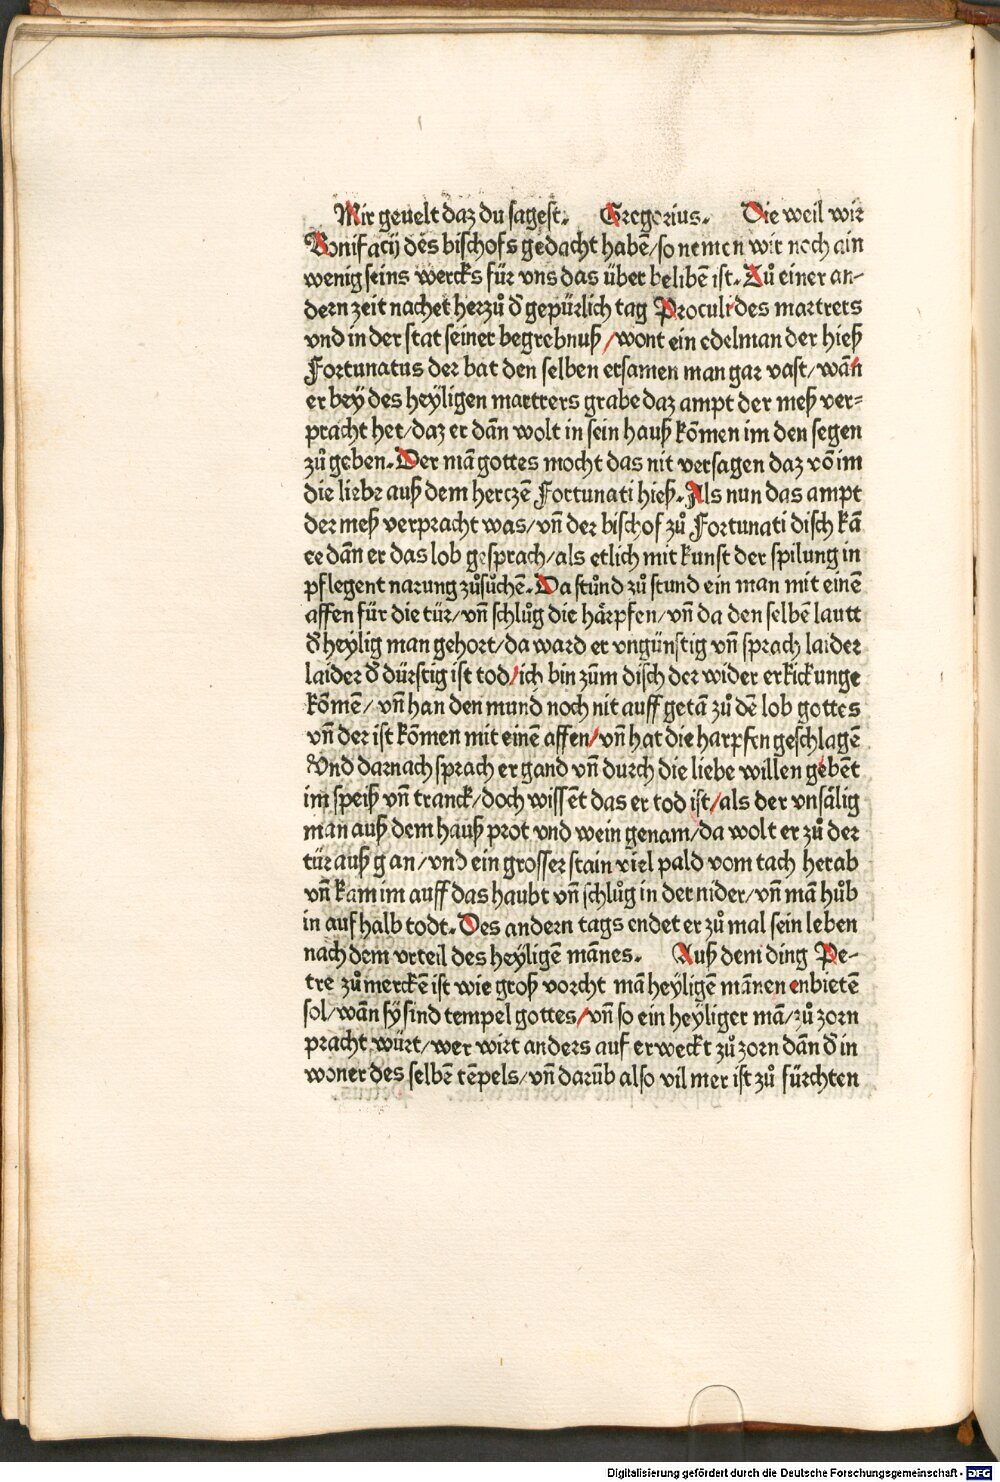 Mir geuelt daz du sagest. Gregorius. Die weil wir
Bonifacij des bischofs gedacht habē/so nemen wir noch ain
wenig seins wercks für vns das über belibē ist. Zů einer an-
dern zeit nachet herzů d̄ gepürlich tag Proculi des martrers
vnd in der stat seiner begrebnuß/wont ein edelman der hieß
Fortunatus der bat den selben ersamen man gar vast/wān
er bey des heyligen martrers grabe daz ampt der meß ver-
pracht het/daz er dān wolt in sein hauß kōmen im den segen
zů geben. Der mā gottes mocht das nit versagen daz vō im
die liebe auß dem herczē Fortunati hieß. Als nun das ampt
der meß verpracht was/vn̄ der bischof zů Fortunati disch kā
ee dān er das lob gesprach/als etlich mit kunst der spilung in
pflegent narung zůsůchē. Da stůnd zů stund ein man mit einē
affen für die tür/vn̄ schlůg die härpfen/vn̄ da den selbē lautt
d̄ heylig man gehort/da ward er vngünstig vn̄ sprach laider
laider d̄ dürstig ist tod/ich bin zům disch der wider erkickunge
kōmē/vn̄ han den mund noch nit auff getā zů dē lob gottes
vn̄ der ist kōmen mit einē affen/vn̄ hat die harpfen geschlagē
Vnd darnach sprach er gand vn̄ durch die liebe willen gebēt
im speiß vn̄ tranck/doch wissēt das er tod ist/als der vnsälig
man auß dem hauß prot vnd wein genam/da wolt er zů der
tür auß gan/vnd ein grosser stain viel pald vom tach herab
vn̄ kam im auff das haubt vn̄ schlůg in der nider/vn̄ mā hůb
in auf halb todt. Des andern tags endet er zů mal sein leben
nach dem vrteil des heyligē mānes. Auß dem ding Pe-
tre zů merckē ist wie groß vorcht mā heyligē mānen enbietē
sol/wān sy sind tempel gottes/vn̄ so ein heyliger mā/zů zorn
pracht würt/wer wirt anders auf erweckt zů zorn dān d̄ in
woner des selbē tēpels/vn̄ darūb also vil mer ist zů fürchten
Digitalisierung gefördert durch die Deutsche Forschungsgemeinschaft - DFG